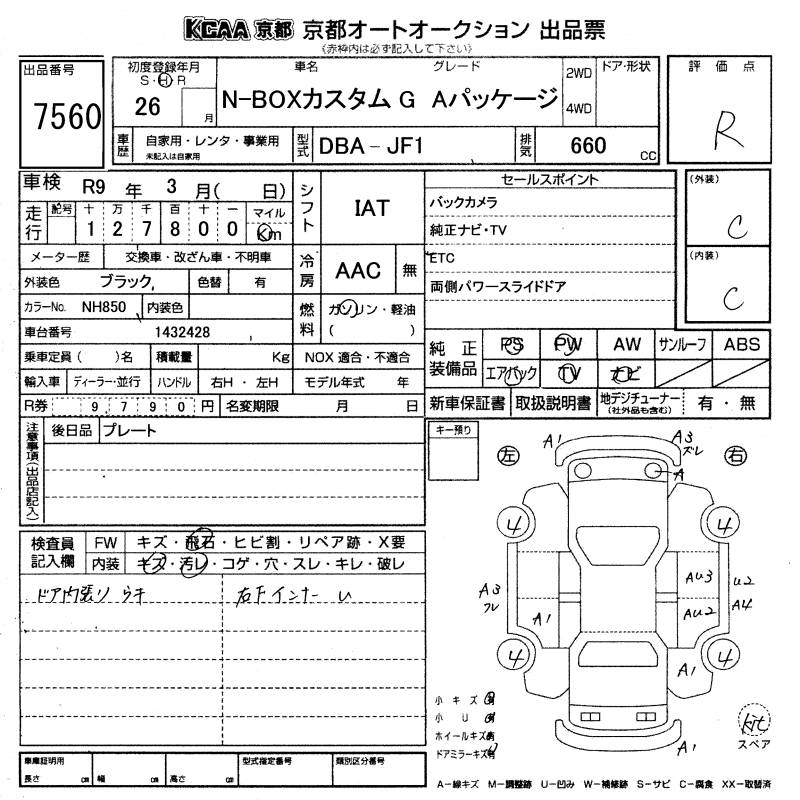 KCAA 京都 京都オートオークション 出品票
(赤枠内は必ず記入して下さい)
出品番号
7560
初度登録年月
S・H・R
26 月
車名 グレード
N-BOXカスタム G Aパッケージ
2WD
4WD
ドア・形状
評価点
R
車歴
自家用・レンタ・事業用
未記入は自家用
型式
DBA-JF1
排気
660 cc
車検 R9 年 3 月( 日)
走行
記号 十 万 千 百 十 一 マイル
1 2 7 8 0 0 Km
シフト
IAT
セールスポイント
バックカメラ
純正ナビ・TV
ETC
両側パワースライドドア
(外装)
C
(内装)
C
メーター歴 交換車・改ざん車・不明車
外装色 ブラック 色替 有
冷房
AAC 無
カラーNo. NH850 内装色
燃料
ガソリン・軽油
( )
車台番号 1432428
乗車定員( )名 積載量 Kg NOX 適合・不適合
輸入車 ディーラー・並行 ハンドル 右H・左H モデル年式 年
R券 9790円 名変期限 月 日
純正装備品
PS PW AW サンルーフ ABS
エアバック TV ナビ
新車保証書 取扱説明書 地デジチューナー(社外品も含む) 有・無
注意事項(出品店記入)
後日品 プレート
キー預り
検査員記入欄
FW キズ・飛石・ヒビ割・リペア跡・X要
内装 キズ・汚レ・コゲ・穴・スレ・キレ・破レ
ドア内張り ウキ
右下インナー
左 右
A1
A3
ズレ
A
4
4
A3
フレ
A1
AU3
U2
AU2
A4
4
4
A1
A1
小キズ有
小U有
ホイールキズ有
ドアミラーキズ有
kit
スペア
車庫証明用
長さ cm 幅 cm 高さ cm
型式指定番号
類別区分番号
A-線キズ M-調整跡 U-凹み W-補修跡 S-サビ C-腐食 XX-取替済